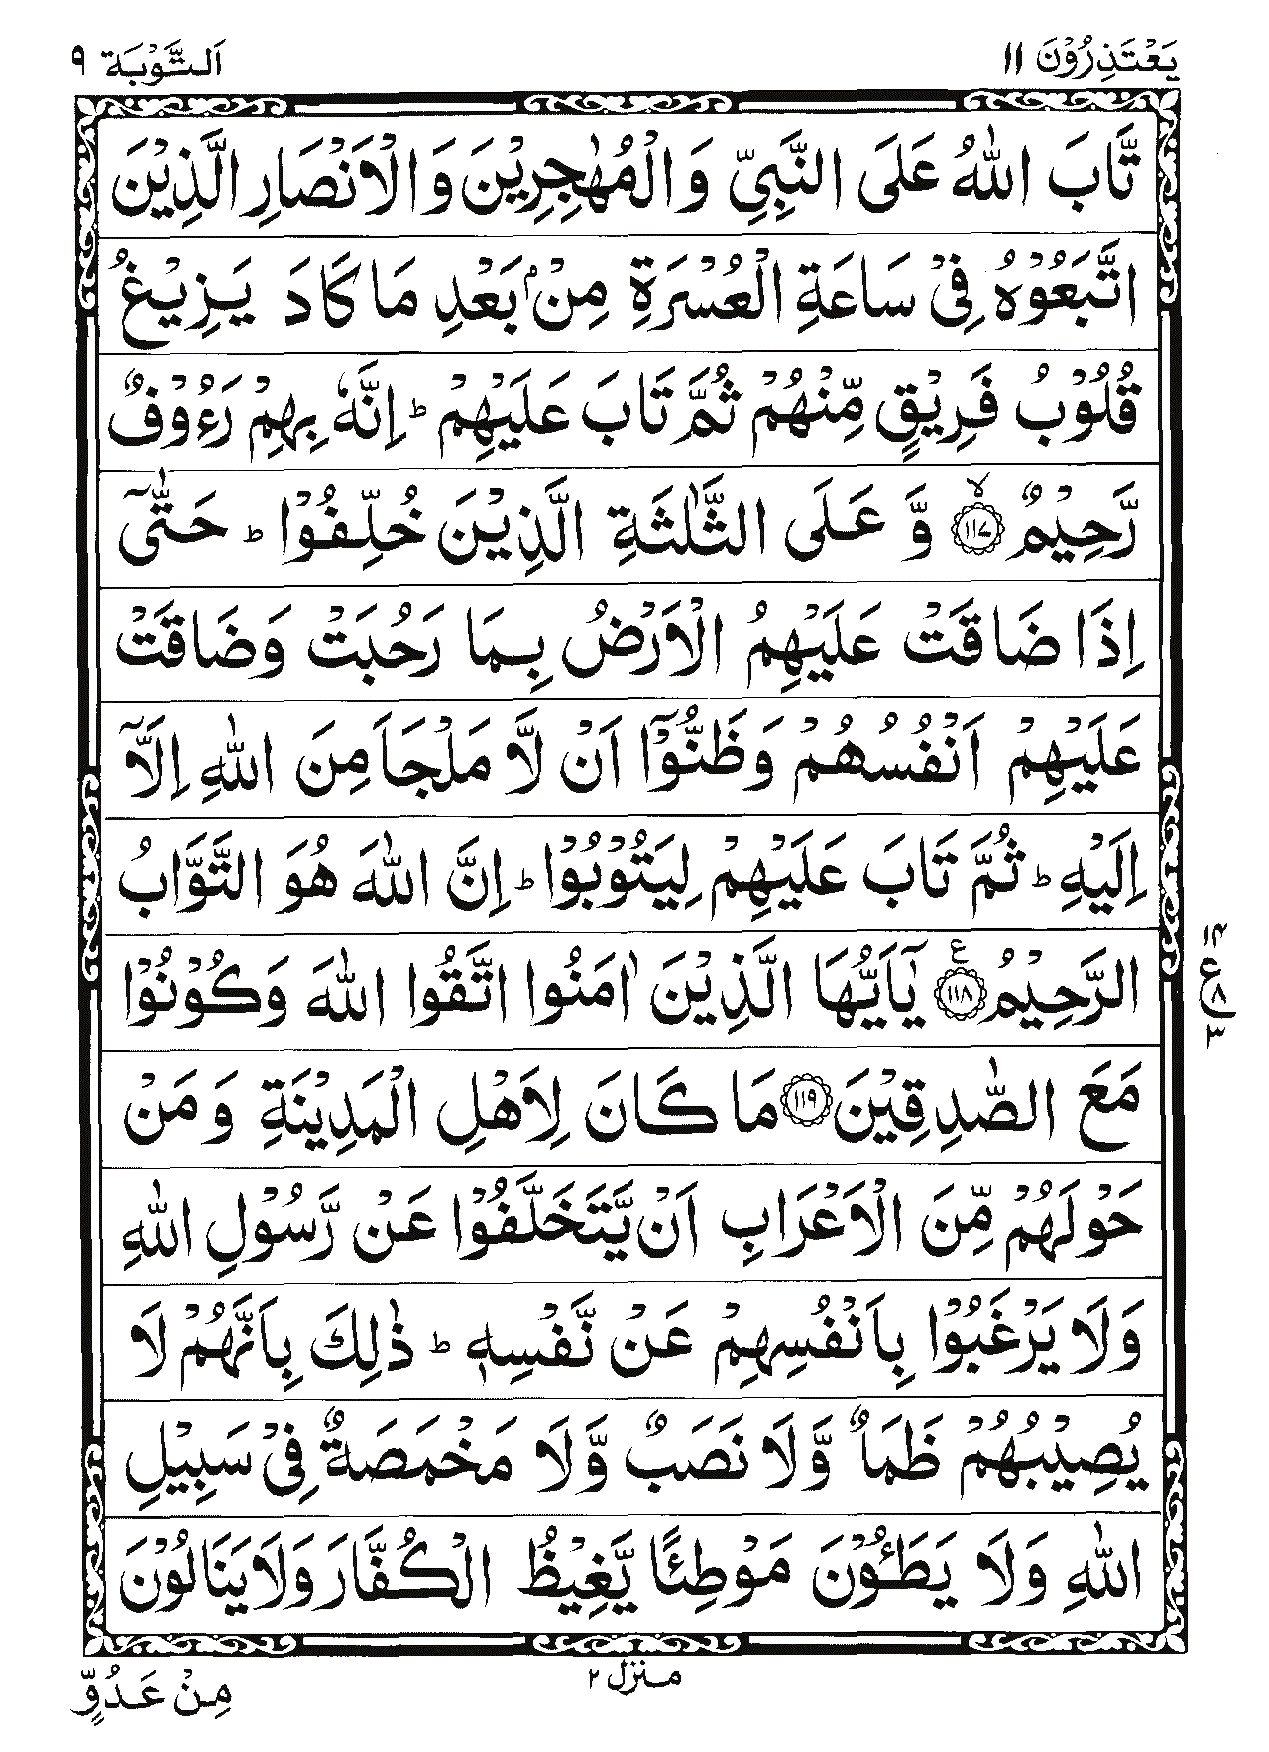 یَعْتَذِرُوْنَ ۱۱
اَلتَّوْبَة ۹
تَّابَ اللّٰهُ عَلَی النَّبِیِّ وَالْمُهٰجِرِیْنَ وَالْاَنْصَارِ الَّذِیْنَ
اتَّبَعُوْهُ فِیْ سَاعَةِ الْعُسْرَةِ مِنْۢ بَعْدِ مَا كَادَ یَزِیْغُ
قُلُوْبُ فَرِیْقٍ مِّنْهُمْ ثُمَّ تَابَ عَلَیْهِمْ ؕ اِنَّهٗ بِهِمْ رَءُوْفٌ
رَّحِیْمٌ ۙ﴿۱۱۷﴾ وَّ عَلَی الثَّلٰثَةِ الَّذِیْنَ خُلِّفُوْا ؕ حَتّٰۤی
اِذَا ضَاقَتْ عَلَیْهِمُ الْاَرْضُ بِمَا رَحُبَتْ وَضَاقَتْ
عَلَیْهِمْ اَنْفُسُهُمْ وَظَنُّوْۤا اَنْ لَّا مَلْجَاَ مِنَ اللّٰهِ اِلَّاۤ
اِلَیْهِ ؕ ثُمَّ تَابَ عَلَیْهِمْ لِیَتُوْبُوْا ؕ اِنَّ اللّٰهَ هُوَ التَّوَّابُ
الرَّحِیْمُ ﴿۱۱۸﴾ ع یٰۤاَیُّهَا الَّذِیْنَ اٰمَنُوا اتَّقُوا اللّٰهَ وَكُوْنُوْا
۱۴
ع
۸
۳
مَعَ الصّٰدِقِیْنَ ﴿۱۱۹﴾ مَا كَانَ لِاَهْلِ الْمَدِیْنَةِ وَمَنْ
حَوْلَهُمْ مِّنَ الْاَعْرَابِ اَنْ یَّتَخَلَّفُوْا عَنْ رَّسُوْلِ اللّٰهِ
وَلَا یَرْغَبُوْا بِاَنْفُسِهِمْ عَنْ نَّفْسِهٖ ؕ ذٰلِكَ بِاَنَّهُمْ لَا
یُصِیْبُهُمْ ظَمَاٌ وَّلَا نَصَبٌ وَّلَا مَخْمَصَةٌ فِیْ سَبِیْلِ
اللّٰهِ وَلَا یَطَـُٔوْنَ مَوْطِئًا یَّغِیْظُ الْكُفَّارَ وَلَا یَنَالُوْنَ
منزل ۲
مِنْ عَدُوٍّ